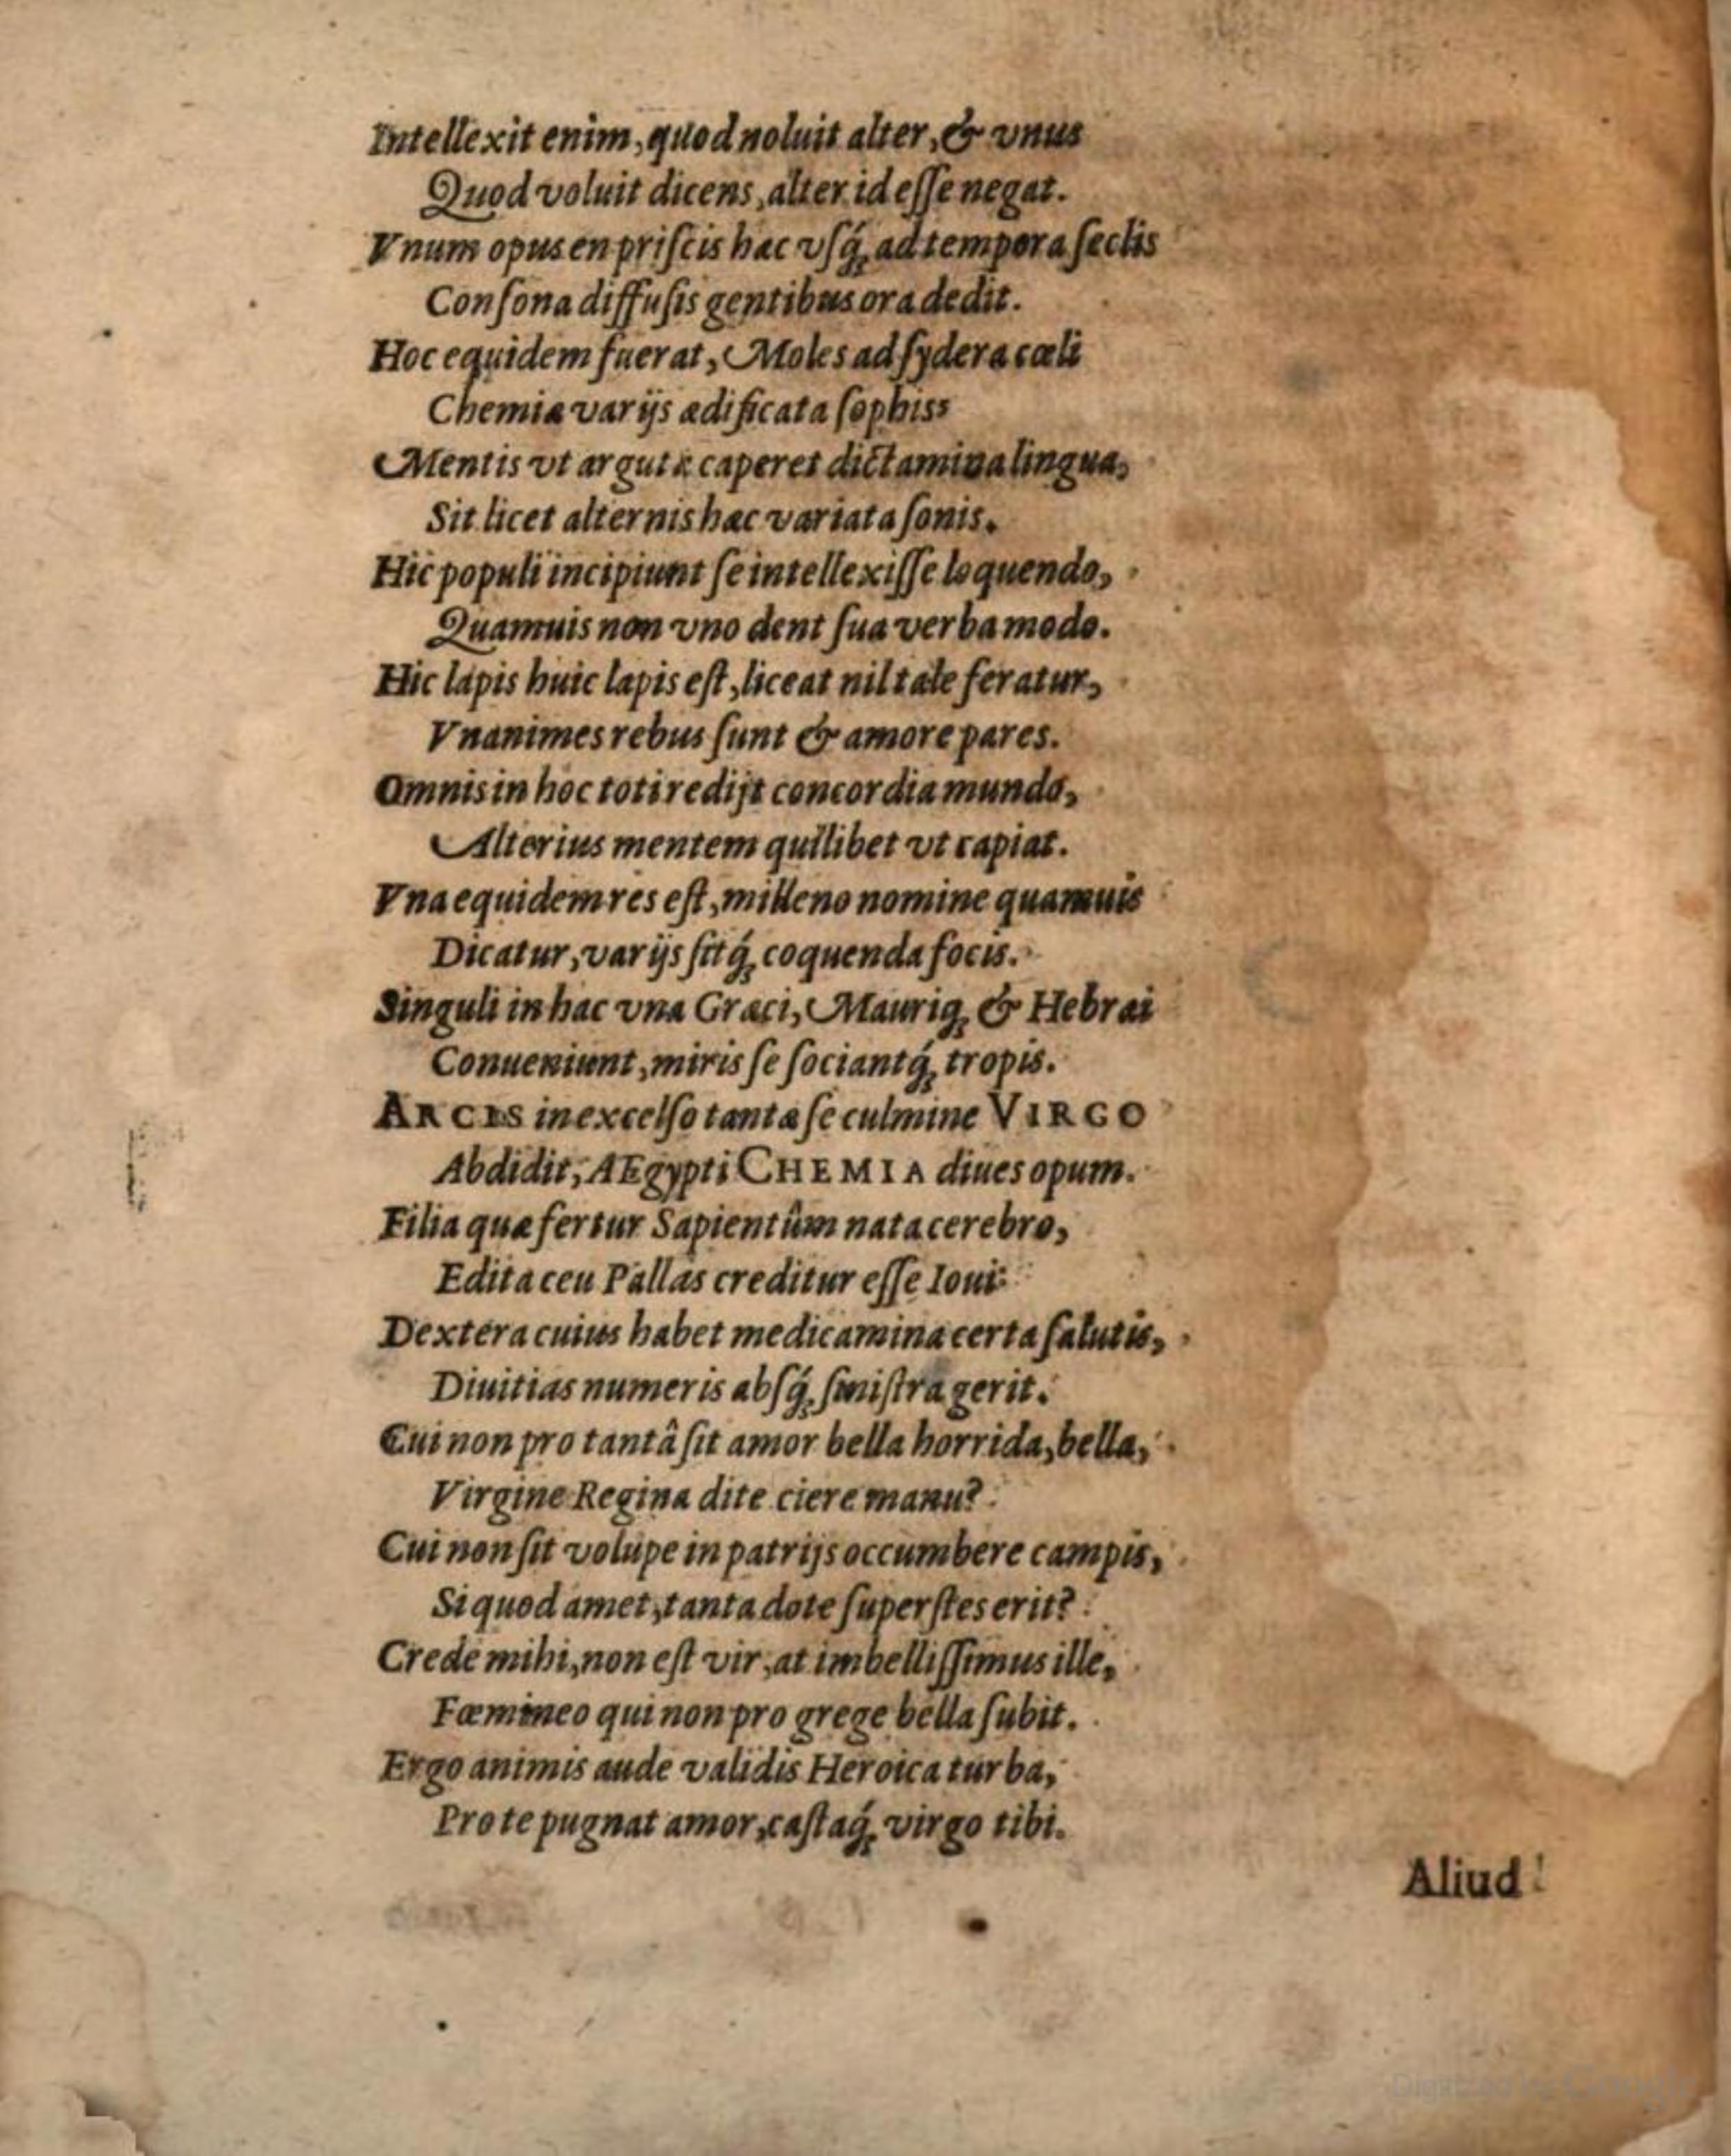 Intellexit enim, quod noluit alter, & vnus
Quod voluit dicens, alter id eſſe negat.
Vnum opus en priſcis hac vſq́; ad tempora ſeclis
Conſona diffuſis gentibus ora dedit.
Hoc equidem fuerat, Moles ad ſydera cœli
Chemiæ varijs ædificata ſophiss
Mentis vt argutæ caperet dictamina lingua,
Sit licet alternis hæc variata ſonis.
Hic populi incipiunt ſe intellexiſſe loquendo,
Quamuis non vno dent ſua verba modo.
Hic lapis huic lapis eſt, liceat nil tale feratur,
Vnanimes rebus ſunt & amore pares.
Omnis in hoc toti redijt concordia mundo,
Alterius mentem quilibet vt capiat.
Vna equidem res eſt, milleno nomine quamuis
Dicatur, varijs ſitq́; coquenda focis.
Singuli in hac vna Græci, Mauriq; & Hebræi
Conueniunt, miris ſe ſociantq́; tropis.
ARCIS in excelſo tantæ ſe culmine VIRGO
Abdidit, AEgypti CHEMIA diues opum.
Filia quæ fertur Sapientûm nata cerebro,
Edita ceu Pallas creditur eſſe Ioui:
Dextera cuius habet medicamina certa ſalutis,
Diuitias numeris abſq́; ſiniſtra gerit.
Cui non pro tantâ ſit amor bella horrida, bella,
Virgine Regina dite ciere manu?
Cui non ſit volupe in patrijs occumbere campis,
Si quod amet, tanta dote ſuperſtes erit?
Crede mihi, non eſt vir, at imbelliſſimus ille,
Fœmineo qui non pro grege bella ſubit.
Ergo animis aude validis Heroica turba,
Pro te pugnat amor, caſtaq́; virgo tibi.
Aliud
Digitized by Google